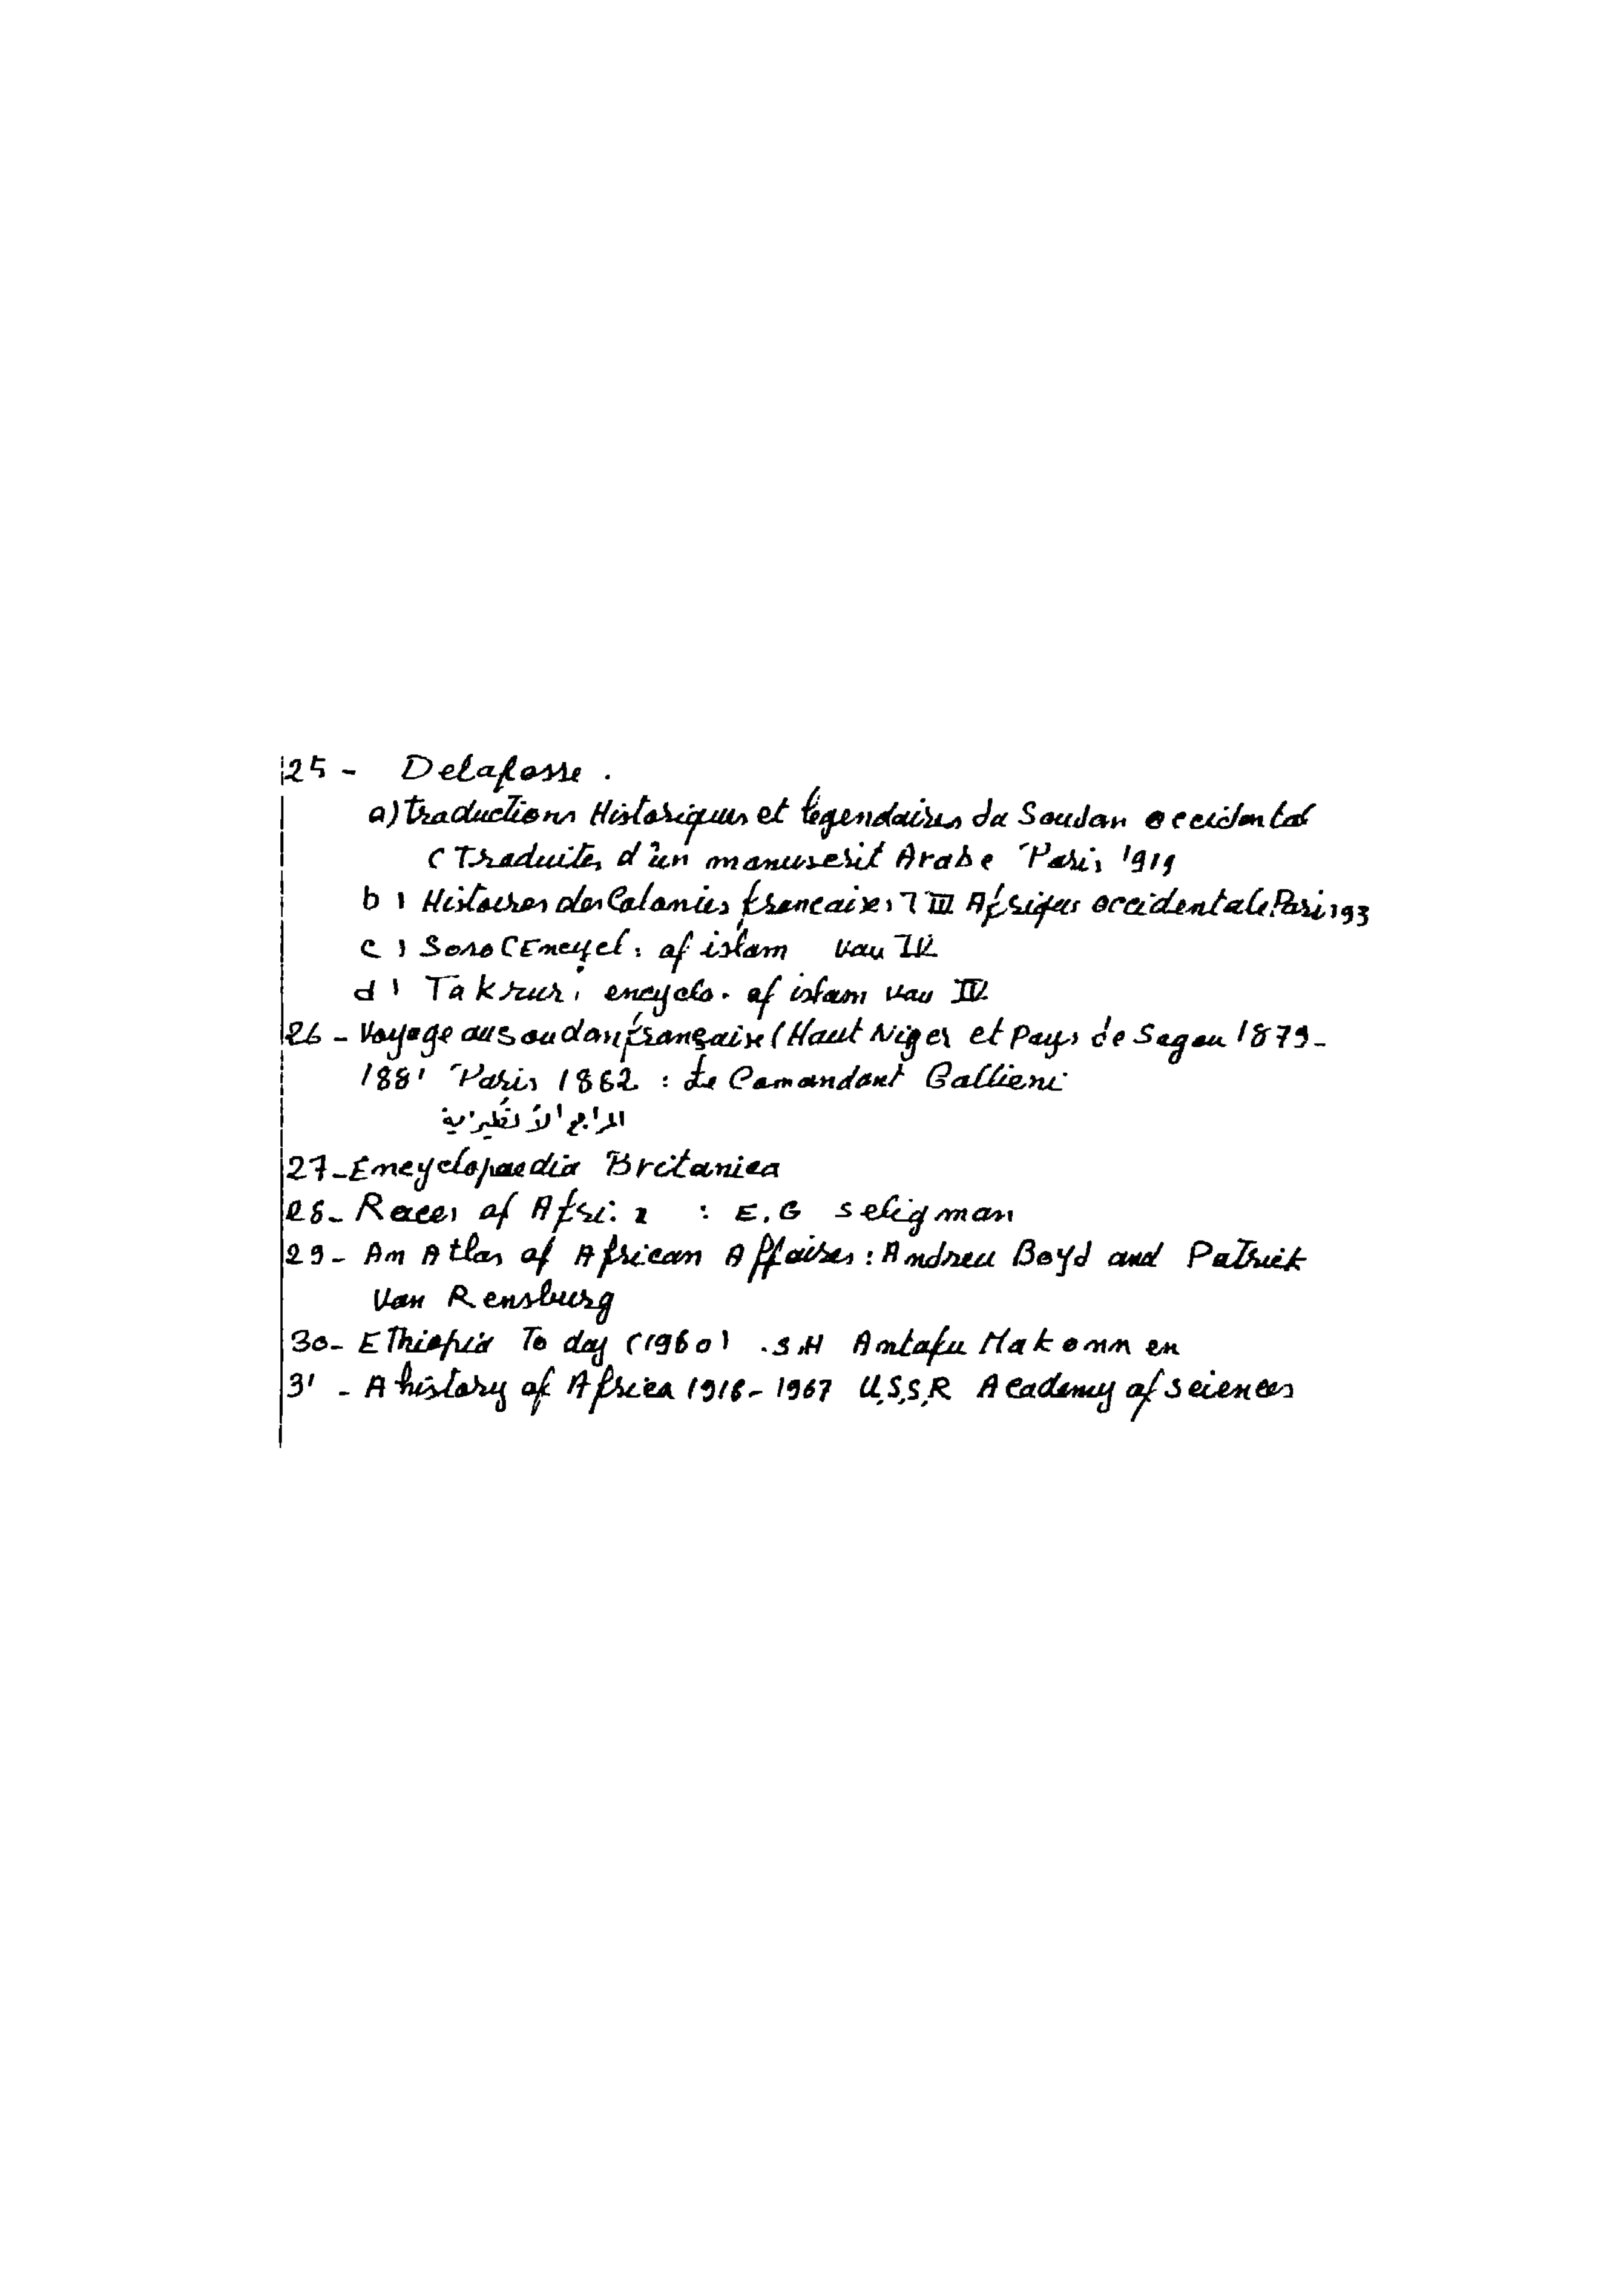 25 - Delafosse.
a) traductions Historiques et légendaires du Soudan occidental
( Traduites d'un manuscrit Arabe Paris 1919
b) Histoires des Colonies françaises T III Afrique occidentale Paris 193
c) Soso (Encycl: of islam vau IV
d) Takrur; encyclo. of islam vau IV
26 - Voyage au Soudan française (Haut Niger et Pays de Segou 1879-
1881 Paris 1862 : Le Comandant Gallieni
المراجع الأنقليزية
27-Encyclopaedia Britanica
28- Races of : E.G seligman
29- An Atlas of African Affaires : Andreu Boyd and Patrick
Van Rensburg
30- EThiopia To day (1960) .S.H Antafu Makonnen
31 - A history of Africa 1918-1967 U.S.S.R Academy of sciences